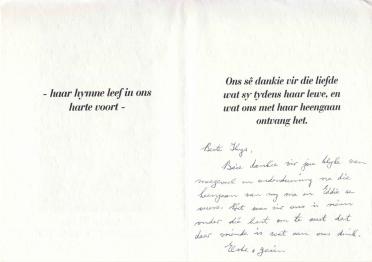 - haar hymne leef in ons
harte voort -
Ons sê dankie vir die liefde
wat sy tydens haar lewe, en
wat ons met haar heengaan
ontvang het.
Beste Thys,
Baie dankie vir jou blyke van
meegevoel en ondersteuning na die
heengaan van my ma en se
Dit was vir ons 'n
onder die om te dat
daar vriende is wat aan ons dink.